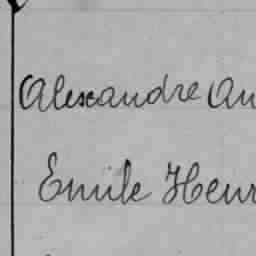 Alexandre An
Emile Henr